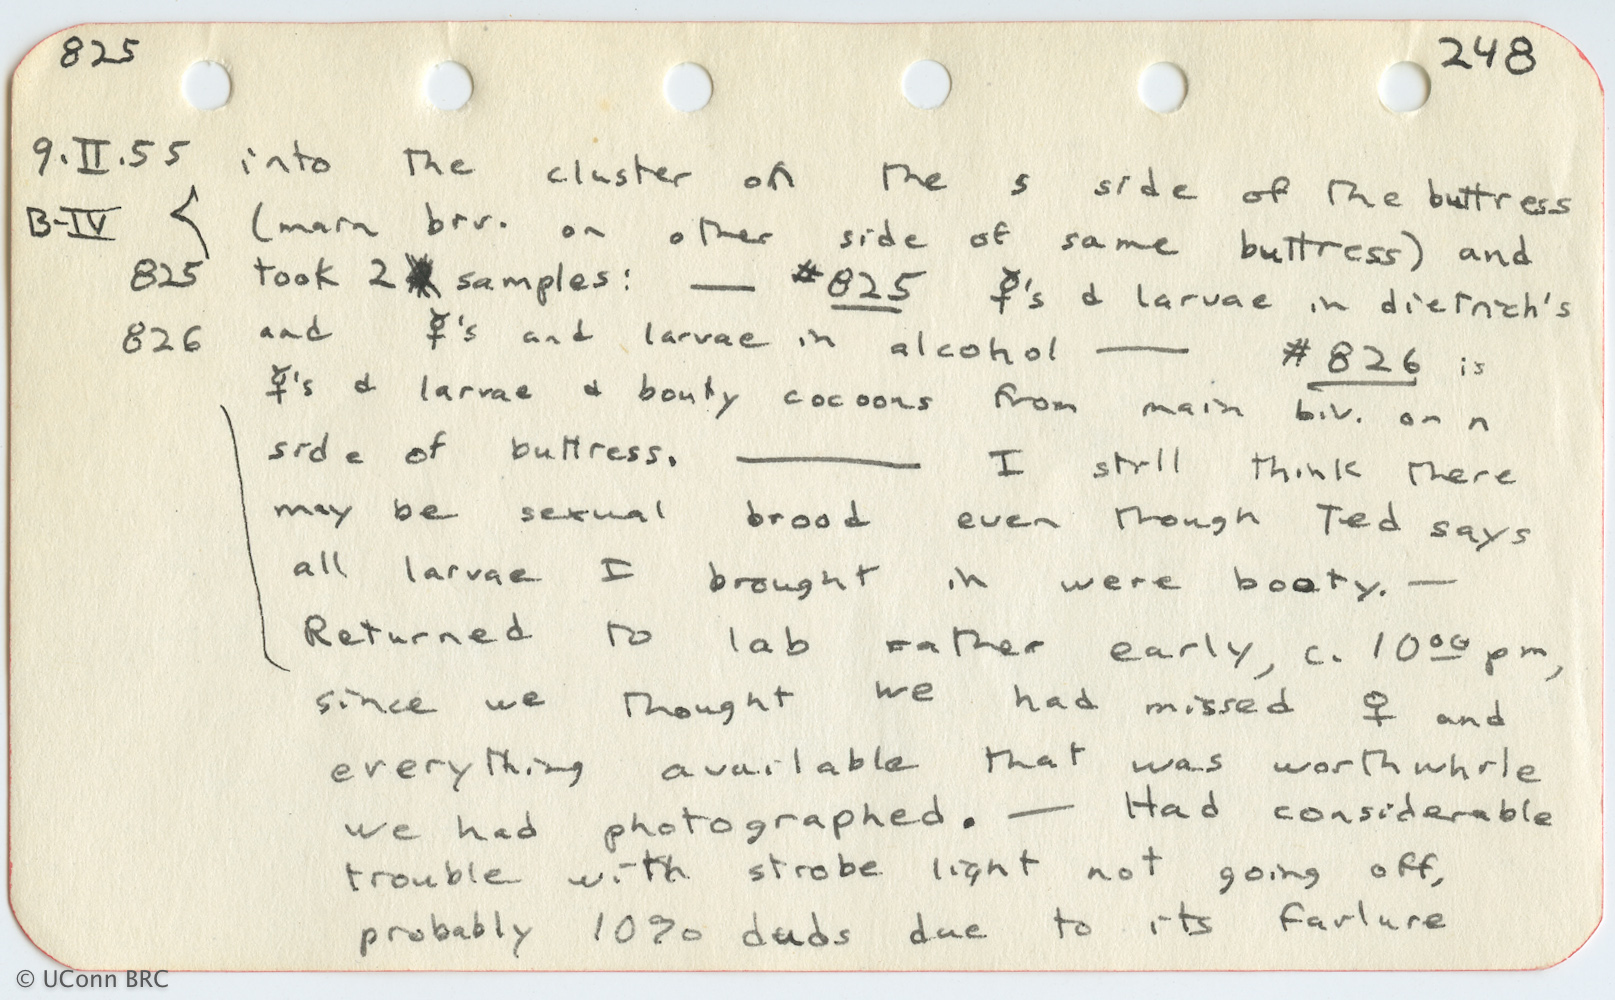 825 248
9.II.55 into the cluster on the s side of the buttress
B-IV (main biv. on other side of same buttress) and
825 took 2 samples: — #825 ☿'s & larvae in dietrich's
826 and ☿'s and larvae in alcohol — #826 is
☿'s & larvae & booty cocoons from main biv. on n
side of buttress. — I still think there
may be sexual brood even though Ted says
all larvae I brought in were booty. —
Returned to lab rather early, c. 10⁰⁰ pm,
since we thought we had missed ♀ and
everything available that was worthwhile
we had photographed. — Had considerable
trouble with strobe light not going off,
probably 10% duds due to its failure
© UConn BRC